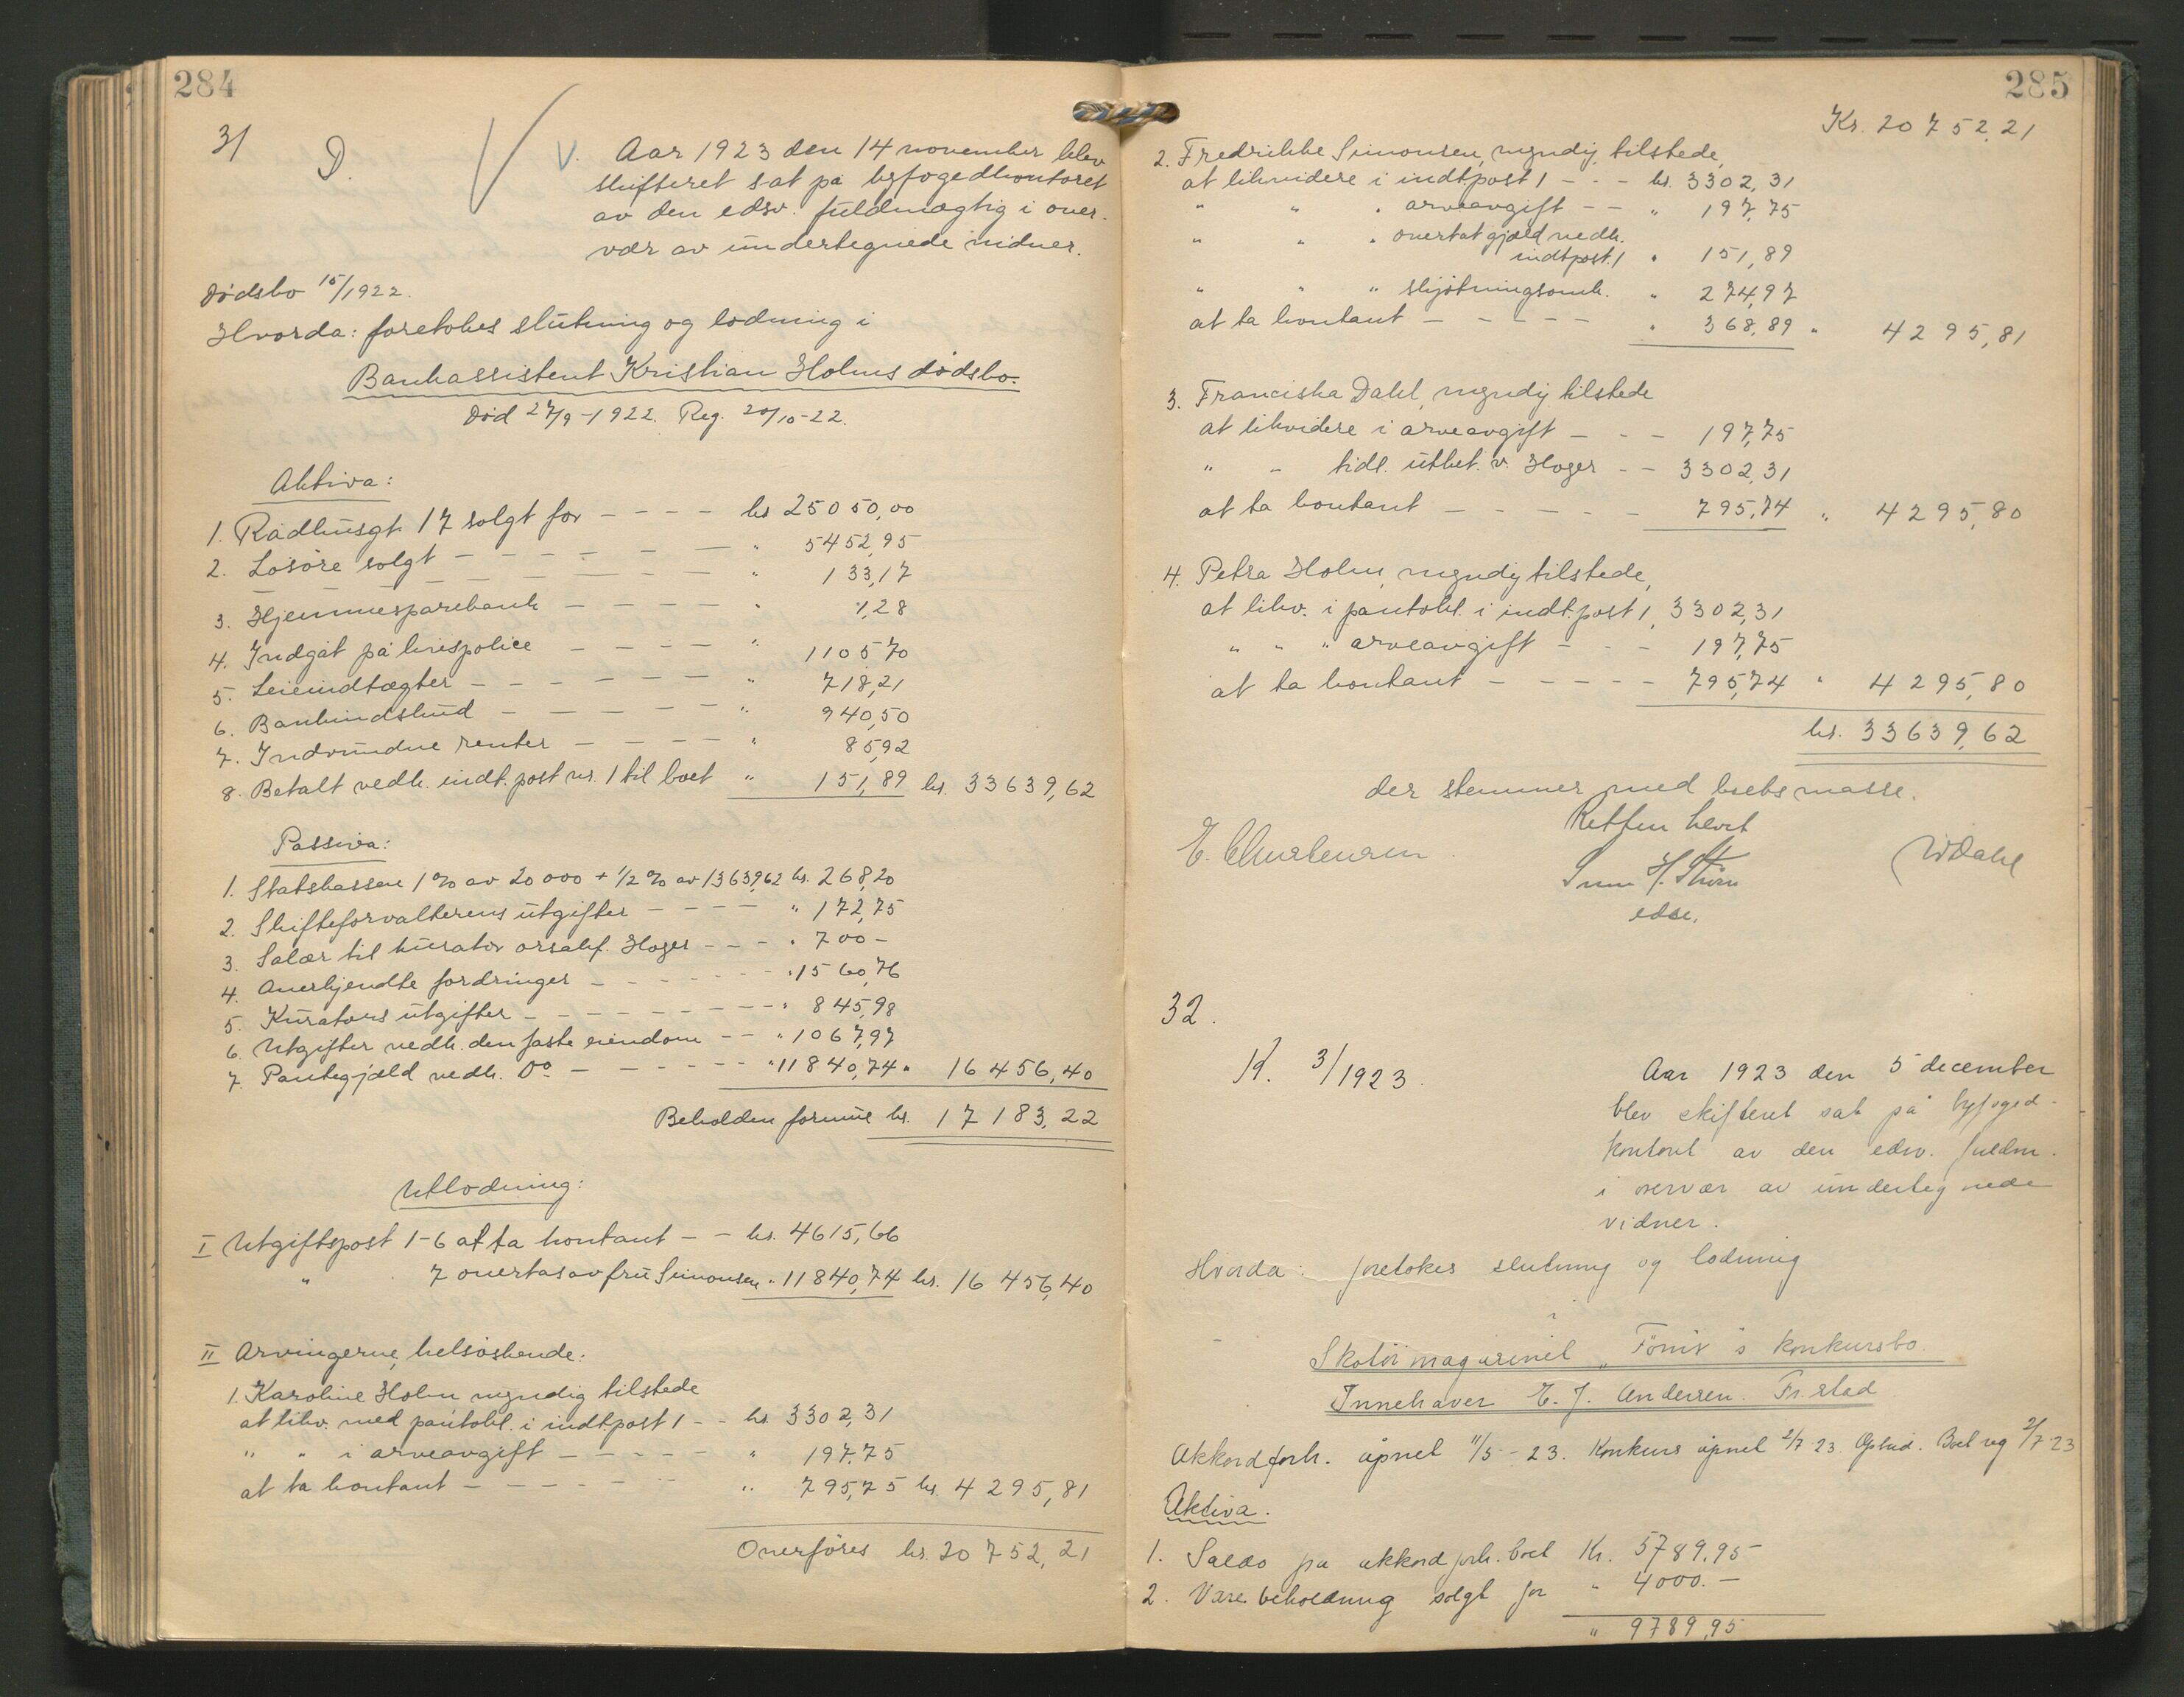 284
31 D. V V. Aar 1923 den 14 november blev
skifteret sat på byfogedkontoret
av den edsv. fuldmægtig i over-
vær av undertegnede vidner.
Dødsbo 15/1922.
Hvorda: foretokes slutning og lodning i
Bankassistent Kristian Holms dødsbo.
Død 27/9-1922. Reg. 20/10-22.
Aktiva:
1. Rådhusgt. 17 solgt for - - - - kr 25050,00
2. Løsøre solgt - - - - - - " 5452,95
- - - - - - " 133,17
3. Hjemmesparebank - - - - " 1,28
4. Indgåt på livspolice - - - - " 1105 70
5. Leieindtægter - - - - - - " 718,21
6. Bankindskud - - - - - " 940,50
7. Indvundne renter - - - - " 85,92
8. Betalt vedk. indt.post nr. 1 til boet " 151,89 kr. 33639,62
Passiva:
1. Statskassen 1% av 20 000 + 1/2% av 13639,62 kr. 268,20
2. Skifteforvalterens utgifter - - - - " 172,75
3. Salær til kurator orsakf. Hoger - - - " 700 -
4. Anerkjendte fordringer - - - - - - " 1560,76
5. Kurators utgifter - - - - - - - - " 845,98
6. Utgifter vedk. den faste eiendom - - " 1067,97
7. Pantegjæld vedk. Do - - - - - - " 11840,74 " 16 456,40
Beholden formue kr. 17 183,22
Utlodning:
I Utgiftspost 1-6 at ta kontant - - kr. 4615,66
" 7 overtas av fru Simonsen " 11840,74 kr. 16 456,40
II Arvingerne, helsøskende:
1. Karoline Holm myndig tilstede
at likv. med pantobl. i indt.post 1 - - kr. 3302,31
" " i arveavgift - - - - - " 197,75
at ta kontant - - - - - - " 795,75 kr. 4295,81
Overføres kr. 20 752,21
285
Kr. 20 752,21
2. Fredrikke Simonsen, myndig, tilstede,
at likvidere i indt.post 1 - - - kr. 3302,31
" " " arveavgift - - " 197,75
" " " overtat gjæld vedk.
indt.post. 1 " 151,89
" " " skjøtningsomk. " 274,97
at ta kontant - - - - - " 368,89 " 4295,81
3. Franciska Dahl, myndig tilstede
at likvidere i arveavgift - - - 197,75
" - tidl. utbet. v. Hoger - - 3302,31
at ta kontant - - - - - 795,74 " 4295,80
4. Petra Holm, myndig tilstede,
at likv. i pantobl. i indt.post 1, 3302,31
" " " arveavgift - - - 197,75
at ta kontant - - - - - 795,74 " 4295,80
kr. 33639,62
der stemmer med boets masse.
Retten hevet
E. Christensen WDahl
edsv.
32.
K. 3/1923. Aar 1923 den 5 december
blev skifteret sat på byfoged-
kontoret av den edsv. fuldm.
i overvær av undertegnede
vidner.
Hvorda: foretokes slutning og lodning
i
Skotøimagasinet "Fönix"s konkursbo.
Innehaver E. J. Andersen. Fr.stad
Akkordforh. åpnet 11/5-23. Konkurs åpnet 2/7 23. Boet reg 2/7-23
Aktiva.
1. Saldo fra akkordforh. boet Kr. 5789.95
2. Varebeholdning solgt for " 4000.-
" 9789,95